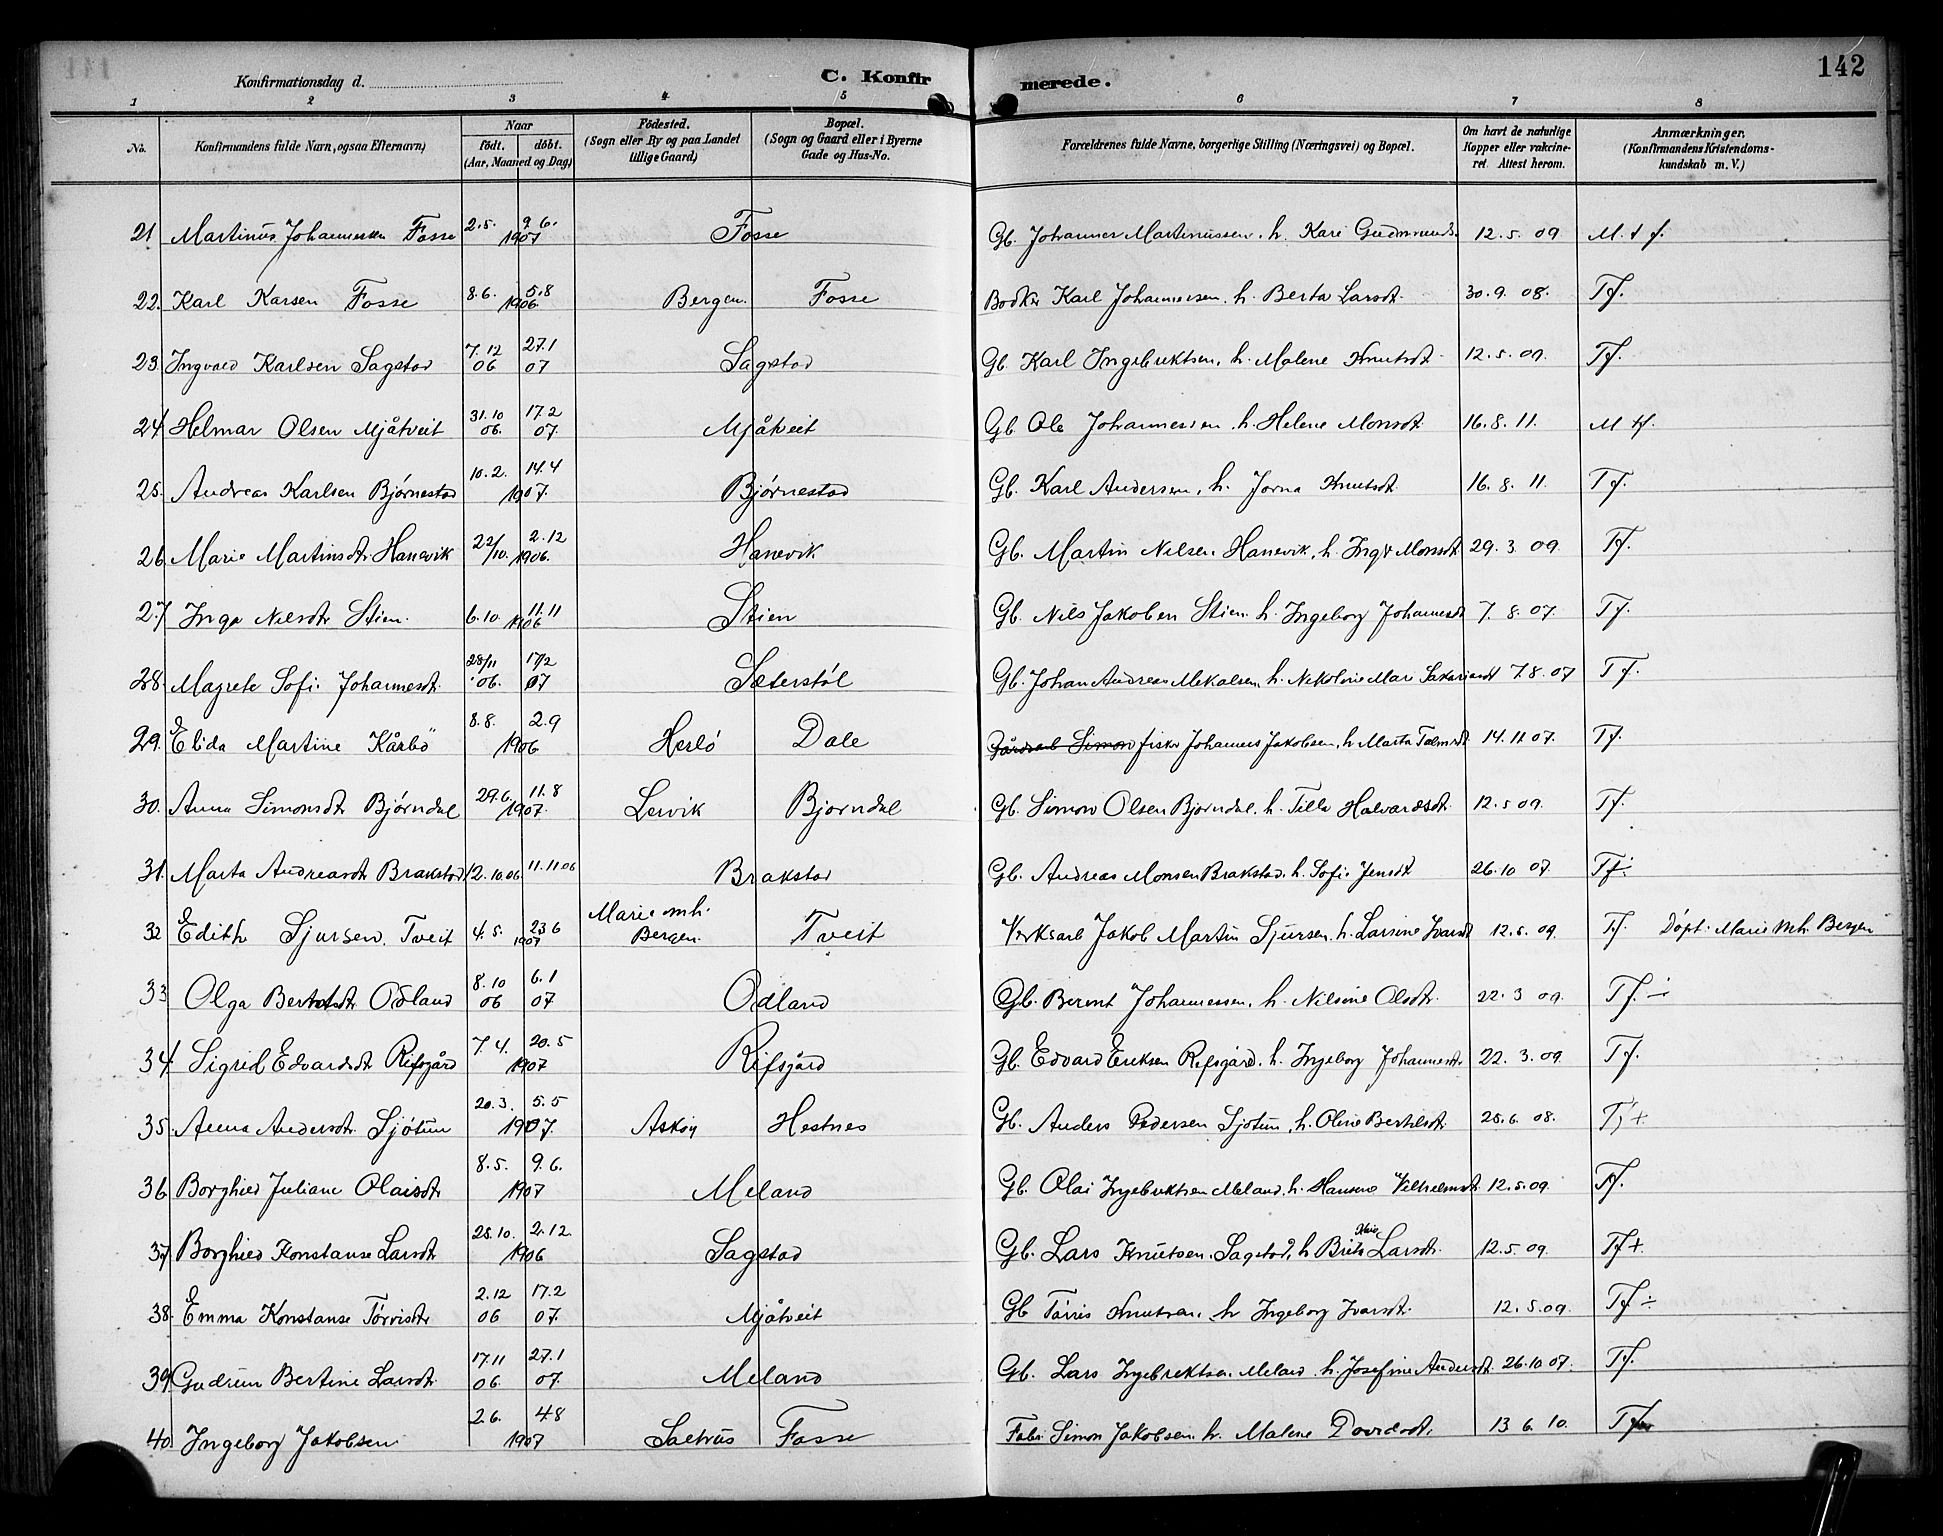 142
Konfirmationsdag d.
C. Konfirmerede.
1 2 3 4 5 6 7 8
No. Konfirmandens fulde Navn, ogsaa Efternavn) Naar födt. döbt. (Aar, Maaned og Dag) Födested. (Sogn eller By og paa Landet tillige Gaard) Bopæl. (Sogn og Gaard eller i Byerne Gade og Hus-No. Forældrenes fulde Navne, borgerlige Stilling (Næringsvei) og Bopæl. Om havt de naturlige Kopper eller vakcineret. Attest herom. Anmærkninger. (Konfirmandens Kristendomskundskab m. V.)
21 Martinus Johannessen Fosse 2.5. 9.6. 1907 Fosse Gb. Johannes Martinussen, h. Kari Gudmunds. 12.5.09 M.tf.
22. Karl Karsen Fosse 8.6. 5.8 1906. Bergen. Fosse Bödker Karl Johannessen, h. Berta Larsdt. 30.9.08. Tf.
23. Ingvald Karlsen Sagstad 7.12 06 27.1 07 Sagstad Gb. Karl Ingebrektsen, h. Malene Knutsdt. 12.5.09. Tf.
24 Helmar Olsen Mjåtveit 31.10 06. 17.2 07 Mjåtveit Gb. Ole Johannessen, h. Helene Monsdt. 16.8.11. M tf.
25. Andreas Karlsen Bjørnestad 10.2. 14.4 1907. Bjørnestad Gb. Karl Andersen, h. Jorna Knutsdt. 16.8.11. Tf.
26 Marie Martinsdt. Hanevik 22/10. 2.12 1906. Hanevik Gb. Martin Nilsen Hanevik, h. Monsdt 29.3.09. Tf.
27 Inga Nilsdt. Stien. 6.10. 11.11 1906 Stien Gb. Nils Jakobsen Stien h. Ingeborg Johannesdt 7.8.07 Tf.
28. Magrete Sofi Johannesdt. 28/11 06. 17/2 07 Sæterstøl Gb. Johan Andreas Mikalsen, h. Nikoline Mari Sakariasdt 7.8.07 Tf.
29. Elida Martine Kårbö 8.8. 2.9 1906 Herlö Dale Gårdarb Simon fisker Johannes Jakobsen, h. Marta 14.11 07. Tf.
30. Anna Simonsdt Bjørndal 29.6. 11.8 1907. Lervik Bjørndal Gb. Simon Olsen Bjørndal, h. Tilla Halvardsdt. 12.5 09. Tf.
31. Marta Andreasdt Brakstad 12.10.06 11.11 06 Brakstad Gb. Andreas Monsen Brakstad, h. Sofi Jensdt 26.10 07. Tf÷
32 Edith Sjursen. Tveit 4.5. 23.6 1907 Marie mh. Bergen. Tveit Verksarb Jakob Martin Sjursen, h. Larsine Ivarsdt 12.5.09. Tf. Döpt. Marie mh. Bergen
33 Olga Berntsdt. Odland 8.10 06 6.1 07 Odland Gb. Bernt Johannessen, h. Nilsine Olsdt. 22.3 09. Tf. ÷
34 Sigrid Edvardsdt Rifsgård 7.4. 20.5 1907 Rifsgård Gb. Edvard Eriksen Rifsgård, h. Ingeborg Johannesdt. 22.3.09. Tf.
35. Anna Andersdt. Sjötun 20.3. 5.5 1907. Askøy Hestnes Gb. Anders Pedersen Sjötun, h. Oline Bertilsdt. 25.6.08. Tf+
36 Borghild Juliane Olaisdt 8.5. 9.6. 1907 Meland Gb. Olai Ingebrektsen Meland, h. Hansine Vilhelmsdt. 12.5.09. Tf.
37 Borghild Konstanse Larsdt 25.10. 2.12. 1906 Sagstad Gb. Lars Knutsen Sagstad, h Brita Larsdt. 12.5.09. Tf+
38. Emma Konstanse Törrisdt. 2.12 06 17.2 07. Mjåtveit Gb Törris Knutsen, h Ingeborg Ivarsdt. 12.5.09. Tf÷
39 Gudrun Bertine Larsdt. 17.11 06 27.1 07. Meland Gb. Lars Ingebrektsen Meland h. Josefine Andersdt. 26.10 07. Tf.
40 Ingeborg Jakobsen 2.6. 4.8 1907 Sætrus Fosse Fabr Simon Jakobsen h. Malene Davidsdt. 13 6.10. Tf